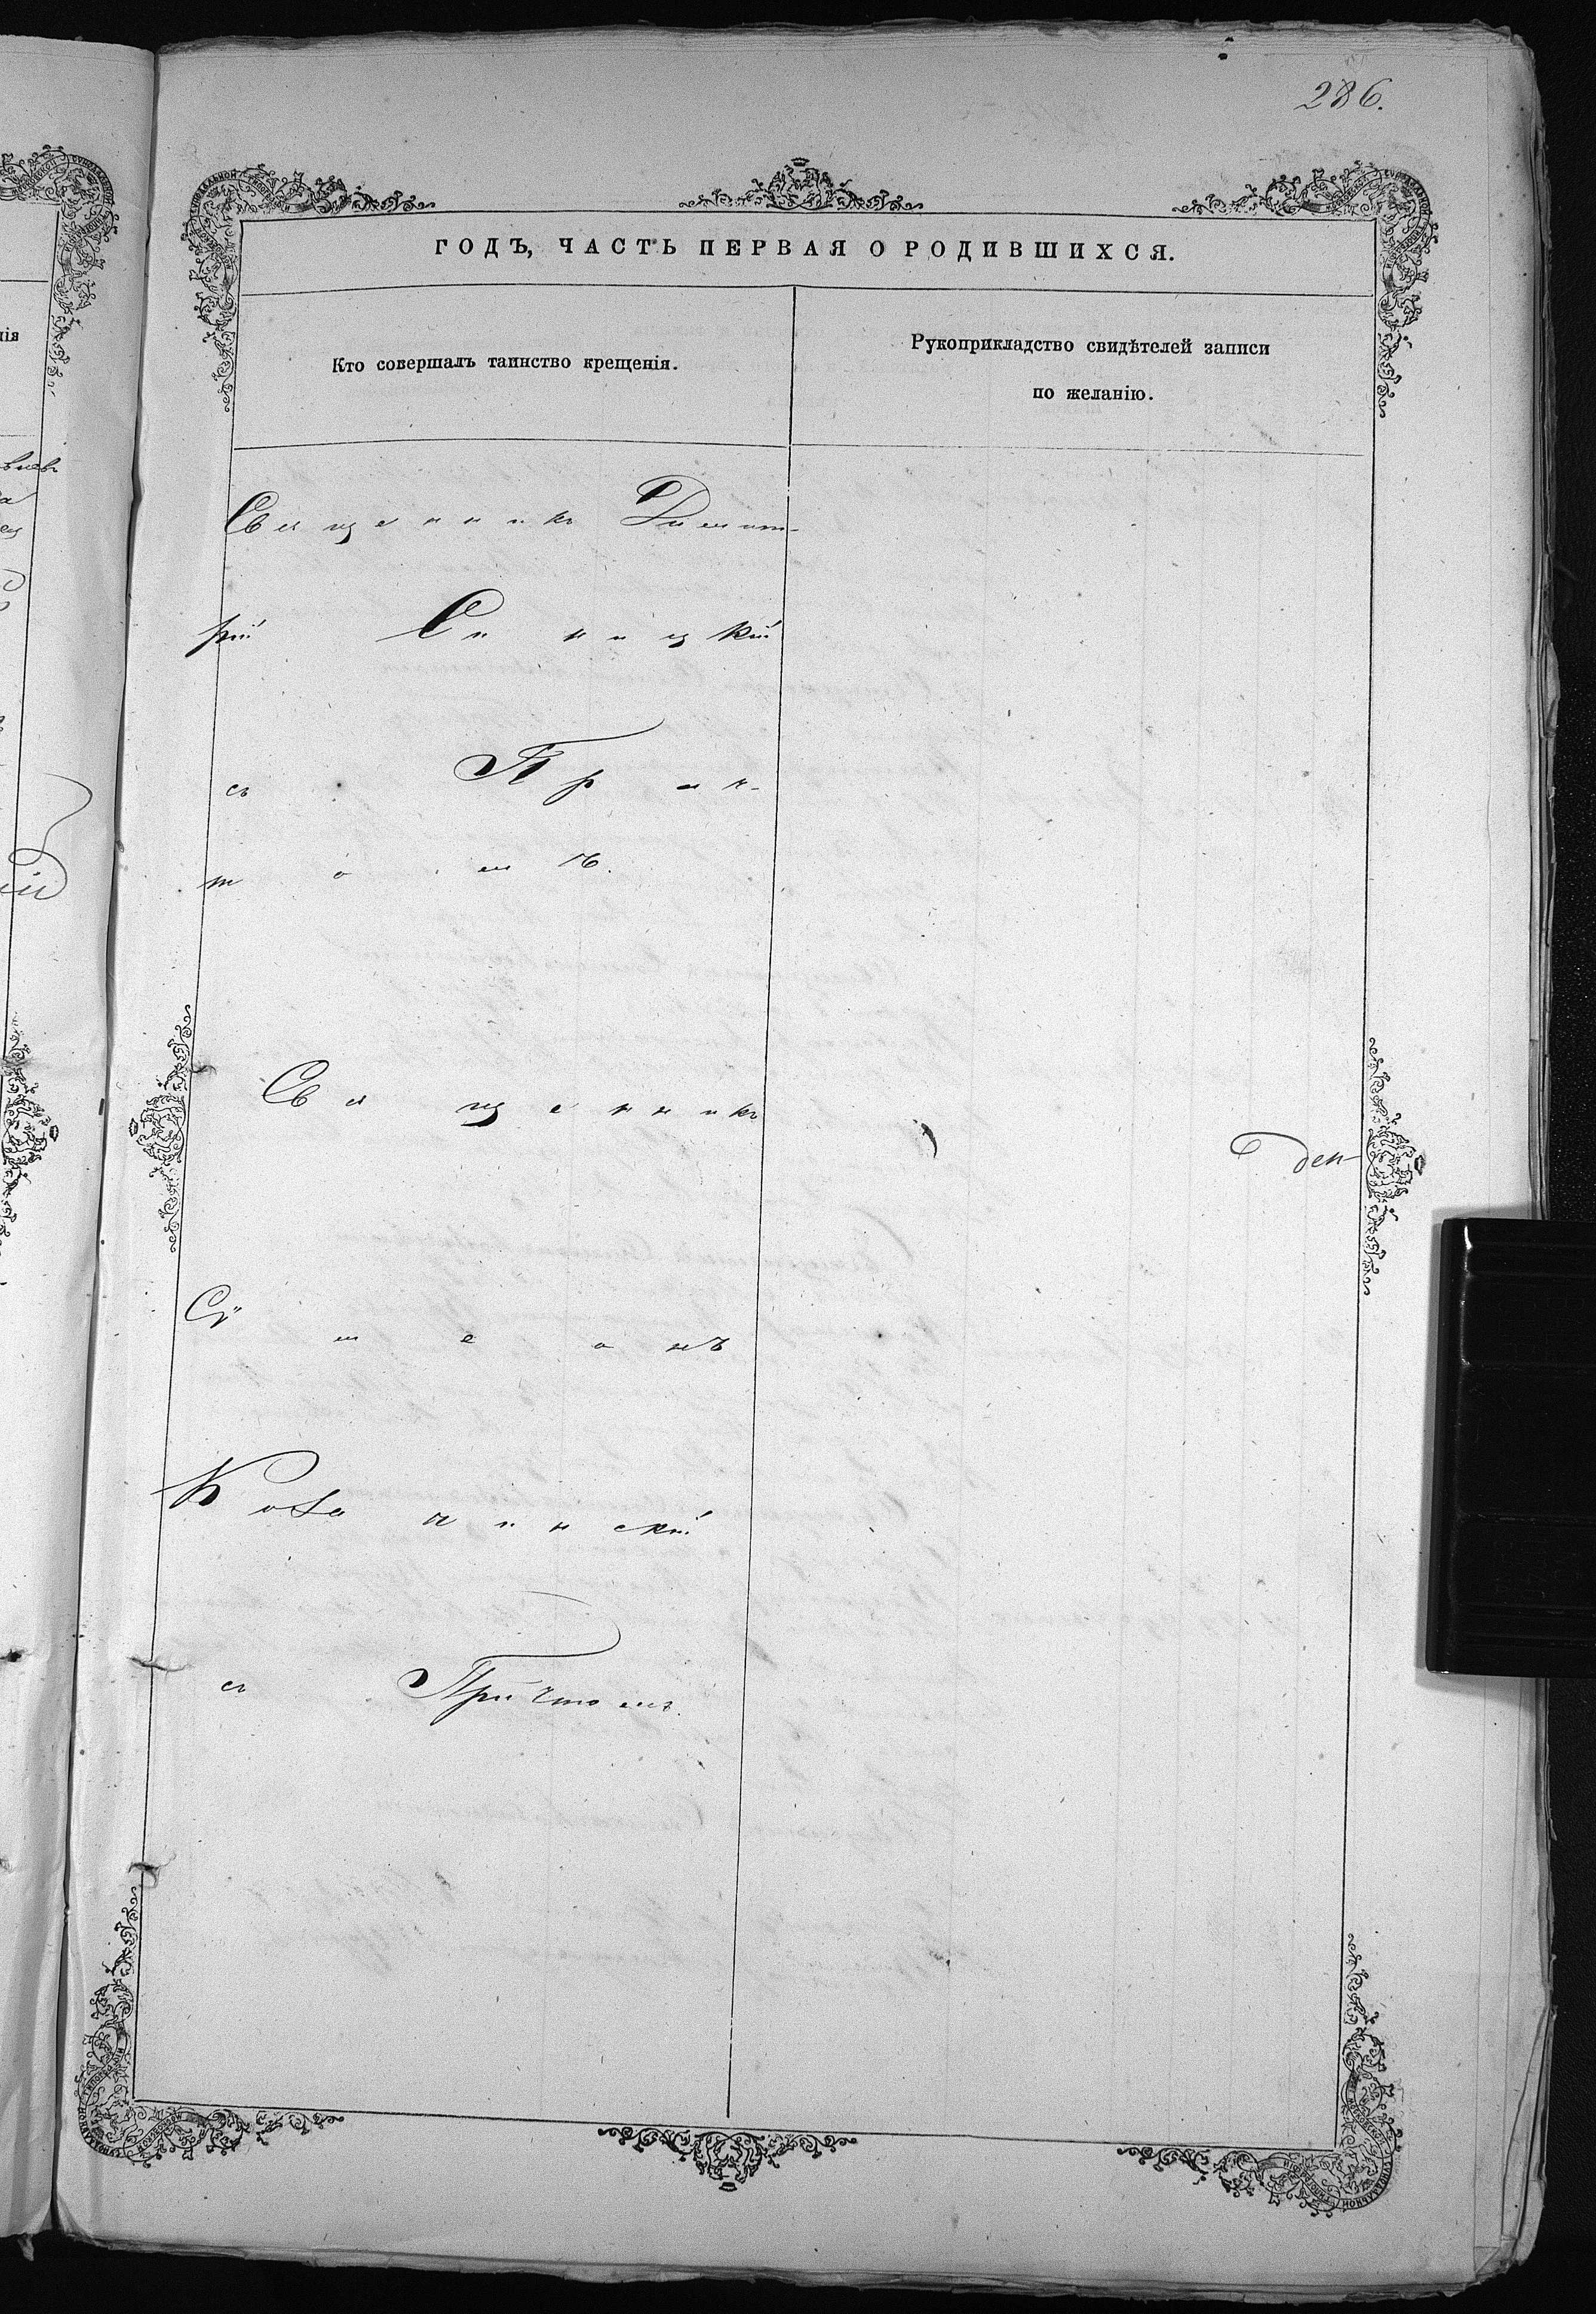 286.
ГОДЪ, ЧАСТЬ ПЕРВАЯ О РОДИВШИХСЯ.
Кто совершалъ таинство крещенія.
Рукоприкладство свидѣтелей записи
по желанію.
Священникъ Димит-
рій Синицкій
съ Прич-
томъ.
Священникъ
Сѵмеонъ
Козачинскій
съ Причтомъ.
ден-